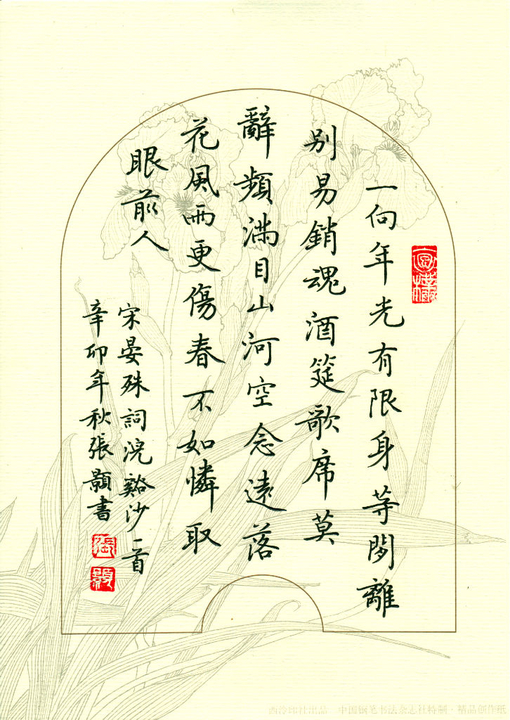 一向年光有限身等閑離
别易銷魂酒筵歌席莫
辭頻滿目山河空念遠落
花風雨更傷春不如憐取
眼前人
宋晏殊詞浣谿沙一首
辛卯年秋張顥書